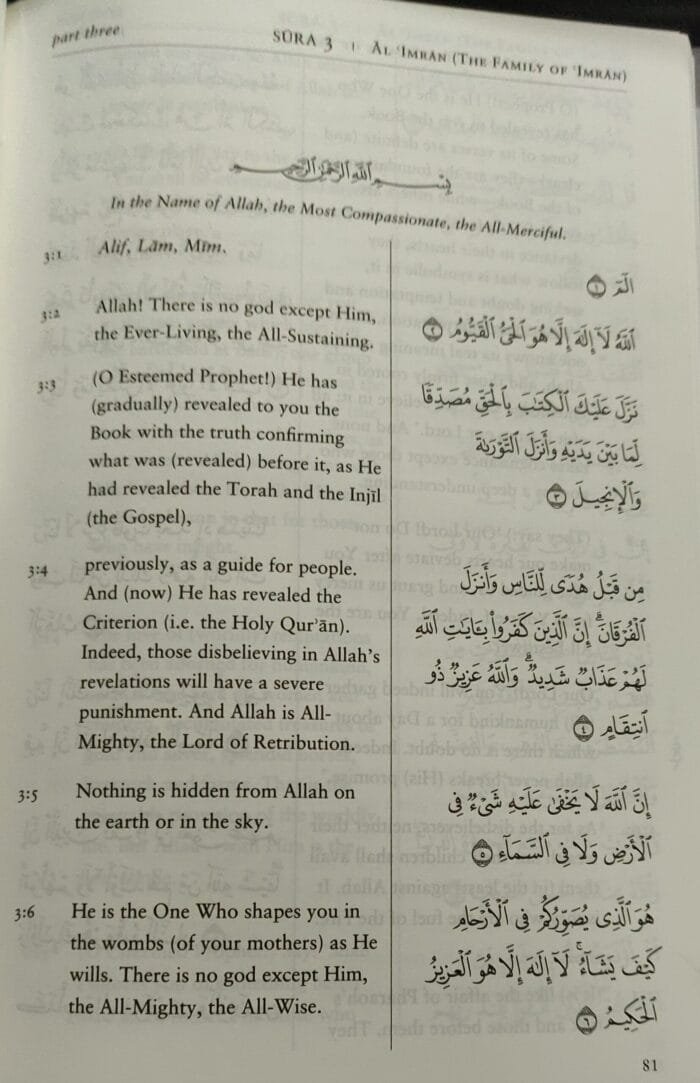 part three
SŪRA 3 | ĀL ʿIMRĀN (THE FAMILY OF ʿIMRĀN)
بِسْمِ اللَّهِ الرَّحْمَٰنِ الرَّحِيمِ
In the Name of Allah, the Most Compassionate, the All-Merciful.
3:1 Alif, Lām, Mīm.
3:2 Allah! There is no god except Him,
the Ever-Living, the All-Sustaining.
3:3 (O Esteemed Prophet!) He has
(gradually) revealed to you the
Book with the truth confirming
what was (revealed) before it, as He
had revealed the Torah and the Injīl
(the Gospel),
3:4 previously, as a guide for people.
And (now) He has revealed the
Criterion (i.e. the Holy Qurʾān).
Indeed, those disbelieving in Allah’s
revelations will have a severe
punishment. And Allah is All-
Mighty, the Lord of Retribution.
3:5 Nothing is hidden from Allah on
the earth or in the sky.
3:6 He is the One Who shapes you in
the wombs (of your mothers) as He
wills. There is no god except Him,
the All-Mighty, the All-Wise.
الٓمٓ ١
ٱللَّهُ لَآ إِلَٰهَ إِلَّا هُوَ ٱلْحَىُّ ٱلْقَيُّومُ ٢
نَزَّلَ عَلَيْكَ ٱلْكِتَٰبَ بِٱلْحَقِّ مُصَدِّقًا
لِّمَا بَيْنَ يَدَيْهِ وَأَنزَلَ ٱلتَّوْرَىٰةَ
وَٱلْإِنجِيلَ ٣
مِن قَبْلُ هُدًى لِّلنَّاسِ وَأَنزَلَ
ٱلْفُرْقَانَ ۗ إِنَّ ٱلَّذِينَ كَفَرُوا۟ بِـَٔايَٰتِ ٱللَّهِ
لَهُمْ عَذَابٌ شَدِيدٌ ۗ وَٱللَّهُ عَزِيزٌ ذُو
ٱنتِقَامٍ ٤
إِنَّ ٱللَّهَ لَا يَخْفَىٰ عَلَيْهِ شَىْءٌ فِى
ٱلْأَرْضِ وَلَا فِى ٱلسَّمَآءِ ٥
هُوَ ٱلَّذِى يُصَوِّرُكُمْ فِى ٱلْأَرْحَامِ
كَيْفَ يَشَآءُ ۚ لَآ إِلَٰهَ إِلَّا هُوَ ٱلْعَزِيزُ
ٱلْحَكِيمُ ٦
81